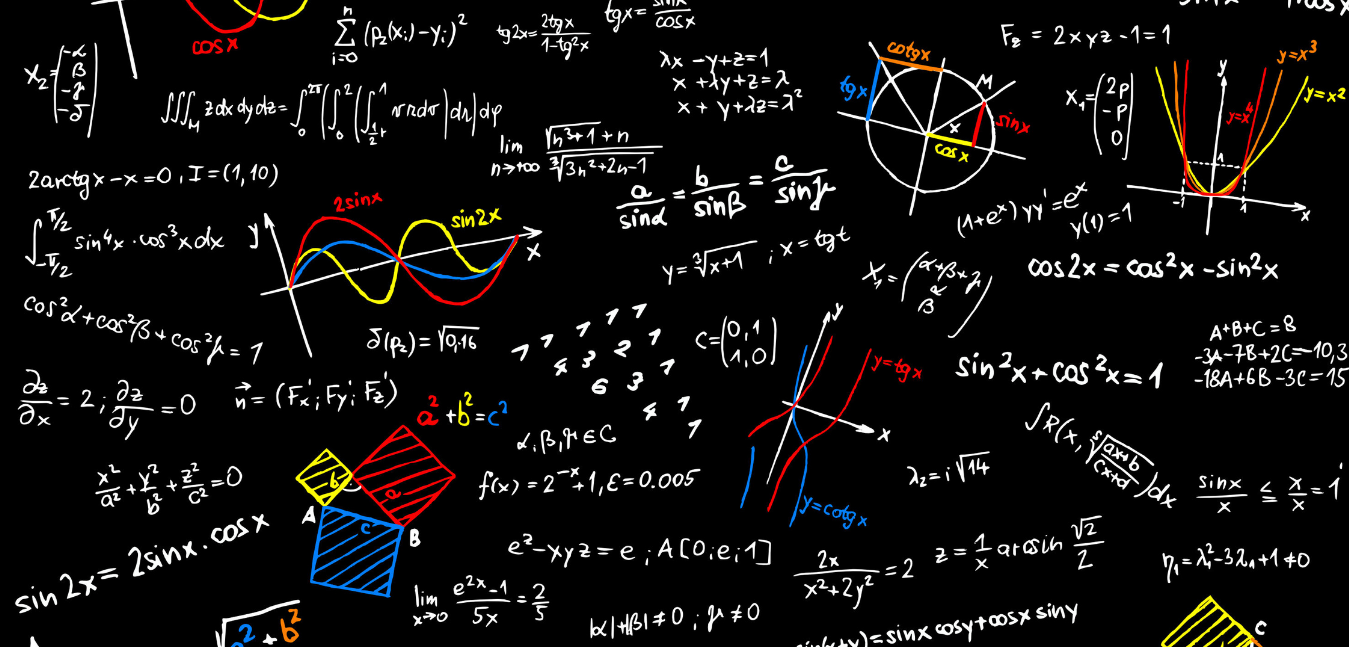 cosx
n
∑ (p₂(xᵢ)-yᵢ)²
i=0
tg2x = 2tgx / 1-tg²x
tgx = sinx / cosx
F₂ = 2xyz-1=1
X₂ (-α
β
-γ
-δ)
∭_M zdxdydz = ∫₀^2π (∫₀²(
λx-y+z=1
x+λy+z=λ
x+y+λz=λ²
cotgx
tgx
M
x
sinx
cosx
X₁=(2p
-p
0)
y
y=x³
y=x²
y=x⁴
1
-1
1
x
lim n→+∞ √(n³+1)+n / ∛(3n²+2n-1)
2arctgx-x=0, I=(1,10)
a/sinα = b/sinβ = c/sinγ
(1+eˣ)yy'=eˣ
y(1)=1
∫_-π/2^π/2 sin⁴x·cos³xdx
y
2sinx
sin2x
x
y=∛(x+1) ; x=tgt
X₁=(α+β+γ
α
β)
cos2x=cos²x-sin²x
cos²α+cos²β+cos²γ=1
δ(p₂)=√0,16
1 1 1 1 1
4 3 2 1
6 3 1
4 1
1
C=(0,1
1,0)
y
y=tgx
x
y=cotgx
sin²x+cos²x=1
A+B+C=8
-3A-7B+2C=-10,3
-18A+6B-3C=15
∂z/∂x=2; ∂z/∂y=0
n⃗=(Fx';Fy';Fz')
a²+b²=c²
α,β,γ∈C
∫R(x,⁵√(ax+b/cx+d))dx
x²/a²+y²/b²+z²/c²=0
b
a
A
c
B
f(x)=2⁻ˣ+1, ε=0.005
λ₂=i√14
sinx/x ≤ x/x=1
sin2x=2sinx.cosx
eᶻ-xyz=e; A[0;e;1]
2x / x²+2y² =2
z=1/x arcsin √2/2
η₁=λ₁²-3λ₁+1≠0
lim x→0 e²ˣ-1 / 5x = 2/5
|α|+|β|≠0; γ≠0
=sinxcosy+cosxsiny
² + b²
C